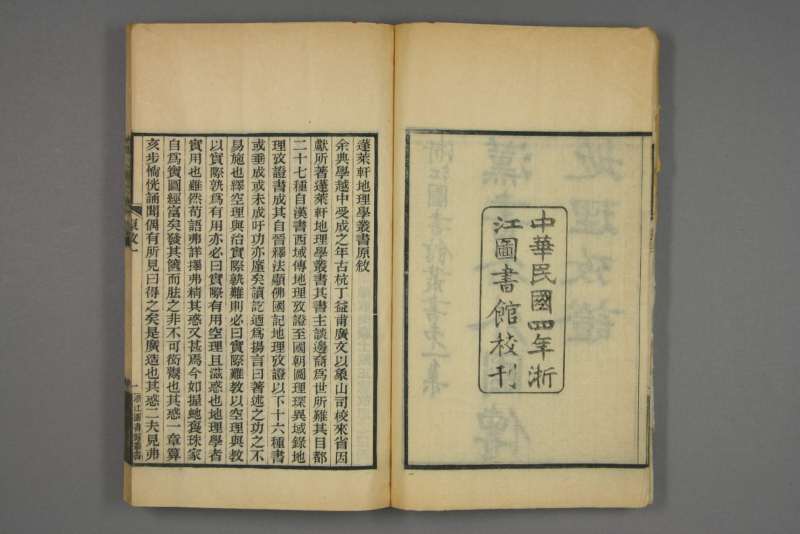 中華民國四年浙
江圖書館校刊
蓬萊軒地理學叢書原敘
余典學越中受成之年古杭丁益甫廣文以象山司校來省因
獻所著蓬萊軒地理學叢書其書主談邊裔爲世所雖其目都
二十七種自漢書西域傳地理攷證至國朝圖理琛異域錄地
理攷證書成其自晉釋法顯佛國記地理攷證以下十六種書
或垂成或未成吁功亦廑矣讀訖迺爲揚言曰著述之功之不
易施也釋空理與治實際孰難則必曰實際難教以空理與教
以實際孰爲有用亦必曰實際有用空理且滋惑也地理學者
實用也雖然苟語弗詳擇弗精其惑又甚焉今如握虵褱珠家
自爲寶圖經富矣發其篋而胠之非不可銜也其惑一章算
亥步惝恍誦聞偶有所見曰得之矣是廣造也其惑二夫見弗
一
浙江圖書館叢書